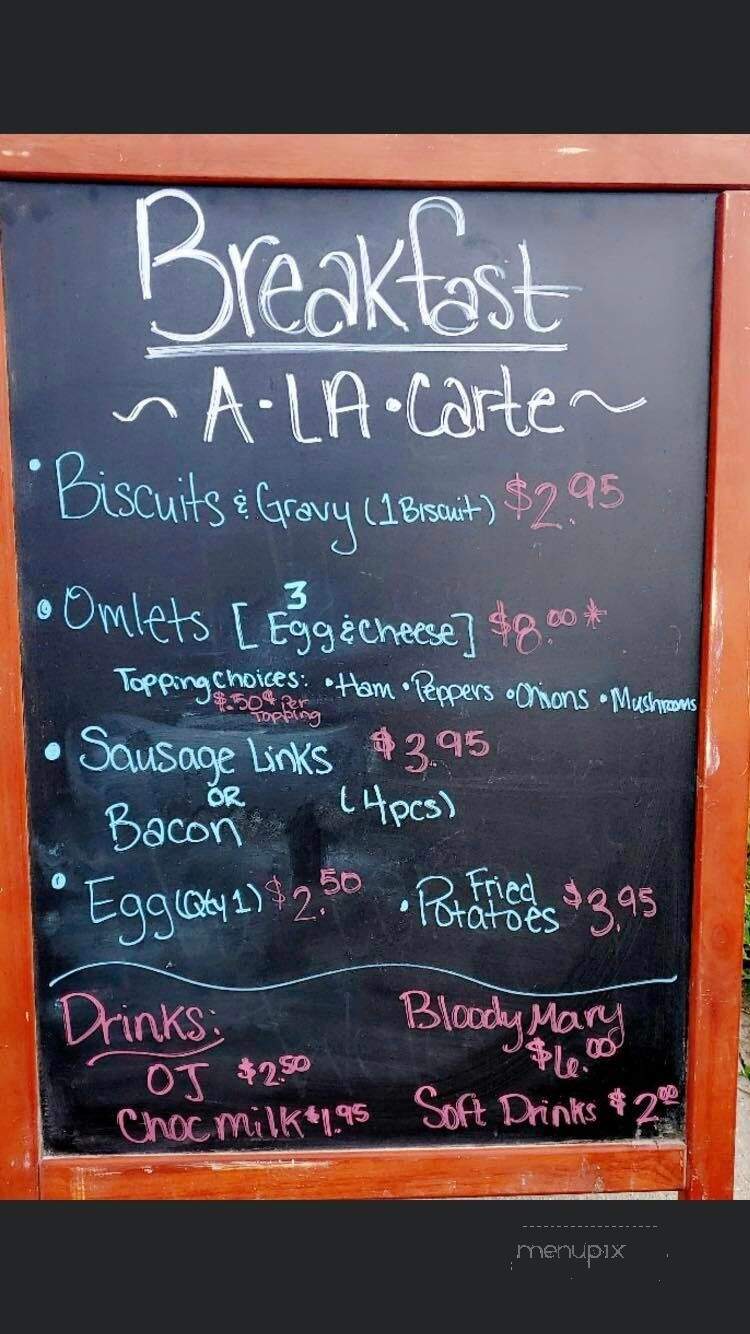 Breakfast
~ A·LA·Carte ~
• Biscuits & Gravy (1 Biscuit) $2.95
• Omlets [3 Egg & Cheese] $8.00*
Topping Choices: • Ham • Peppers • Onions • Mushrooms
$.50¢ Per Topping
• Sausage Links $3.95
OR
Bacon (4pcs)
• Egg (Qty 1) $2.50 • Fried Potatoes $3.95
Drinks: Bloody Mary
OJ $2.50 $6.00
Choc milk $1.95 Soft Drinks $2.00
menupix